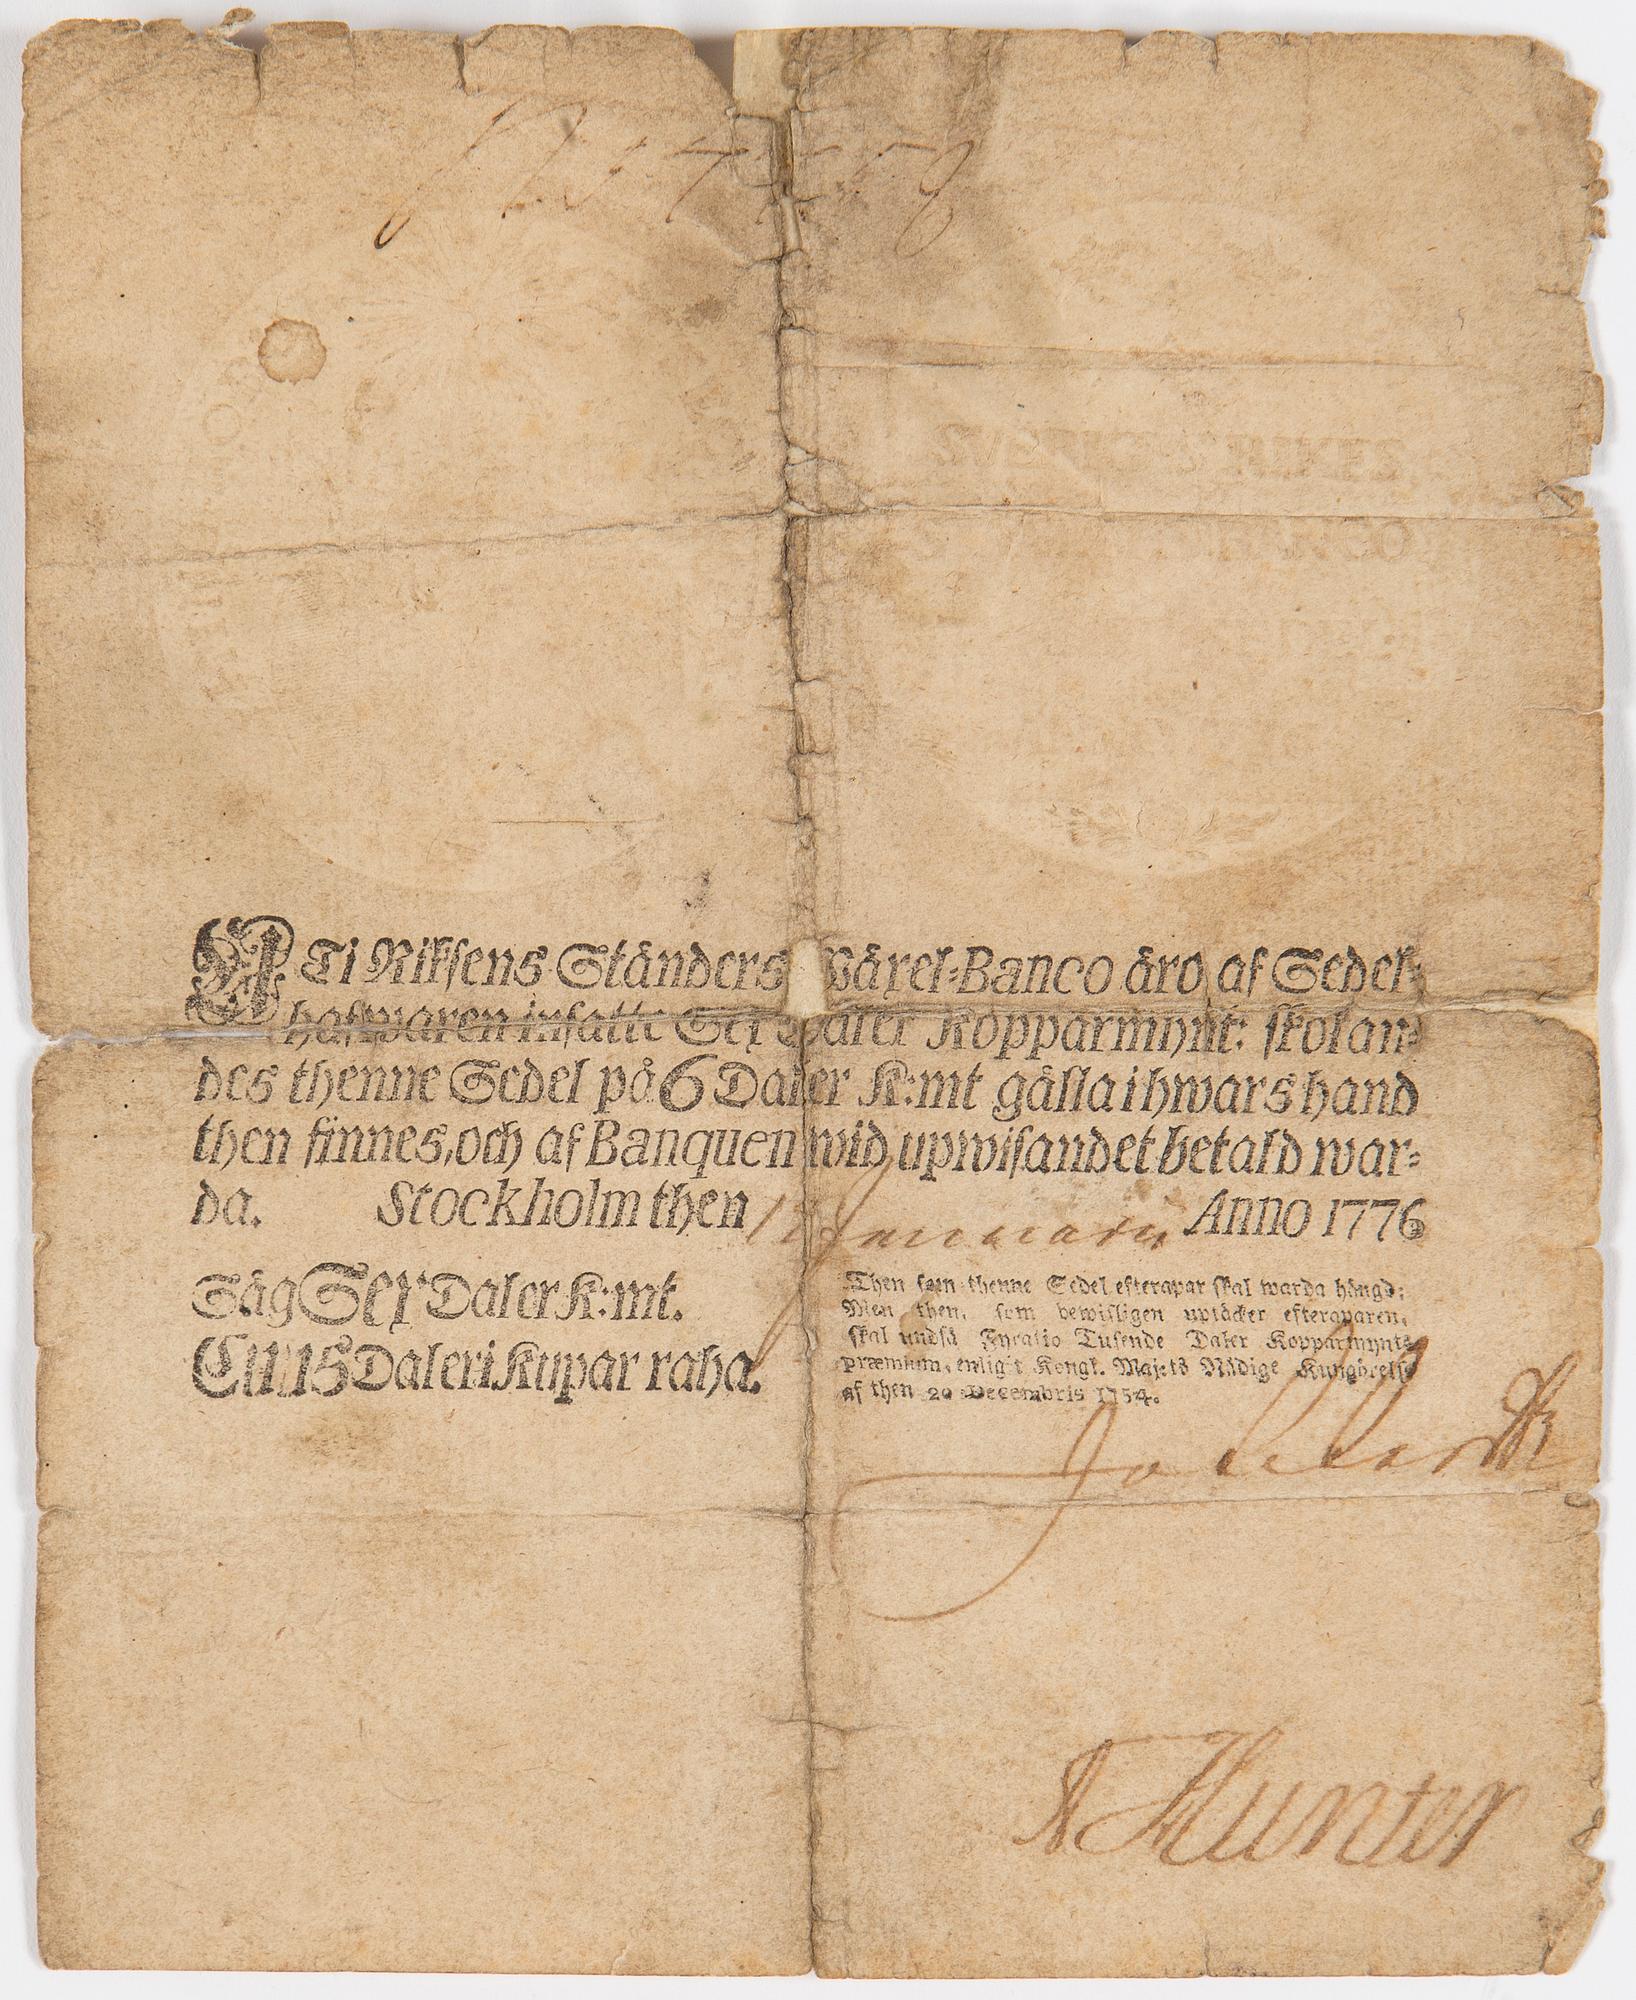 SVERIGES RIKES
Ti Riksens Ständers Wäxel-Banco äro af Sedel-
hafwaren insatte Sex Daler Kopparmynt: skolan-
des thenne Sedel på 6 Daler K:mt gälla i hwars hand
then finnes, och af Banquen wid upwisandet betald war-
da. Stockholm then Januarii Anno 1776
Säg Sex Daler K:mt.
Daleri Kupar raha.
Then som thenne Sedel efterapar skal warda hängd;
Men then, som bewisligen uptäcker efteraparen,
skal undfå Fyratio Tusende Daler Kopparmynts
præmium, enligit Kongl. Maj:ts Nådige Kungörelse
af then 20 Decembris 1754.
Hunter